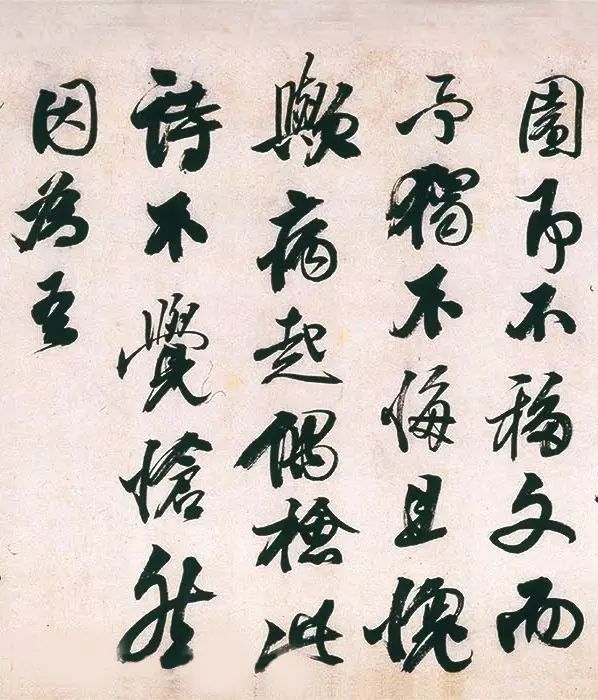 園即不移文而
予獨不悔且愧
歟病起偶檢此
詩不覺愴然
因為五